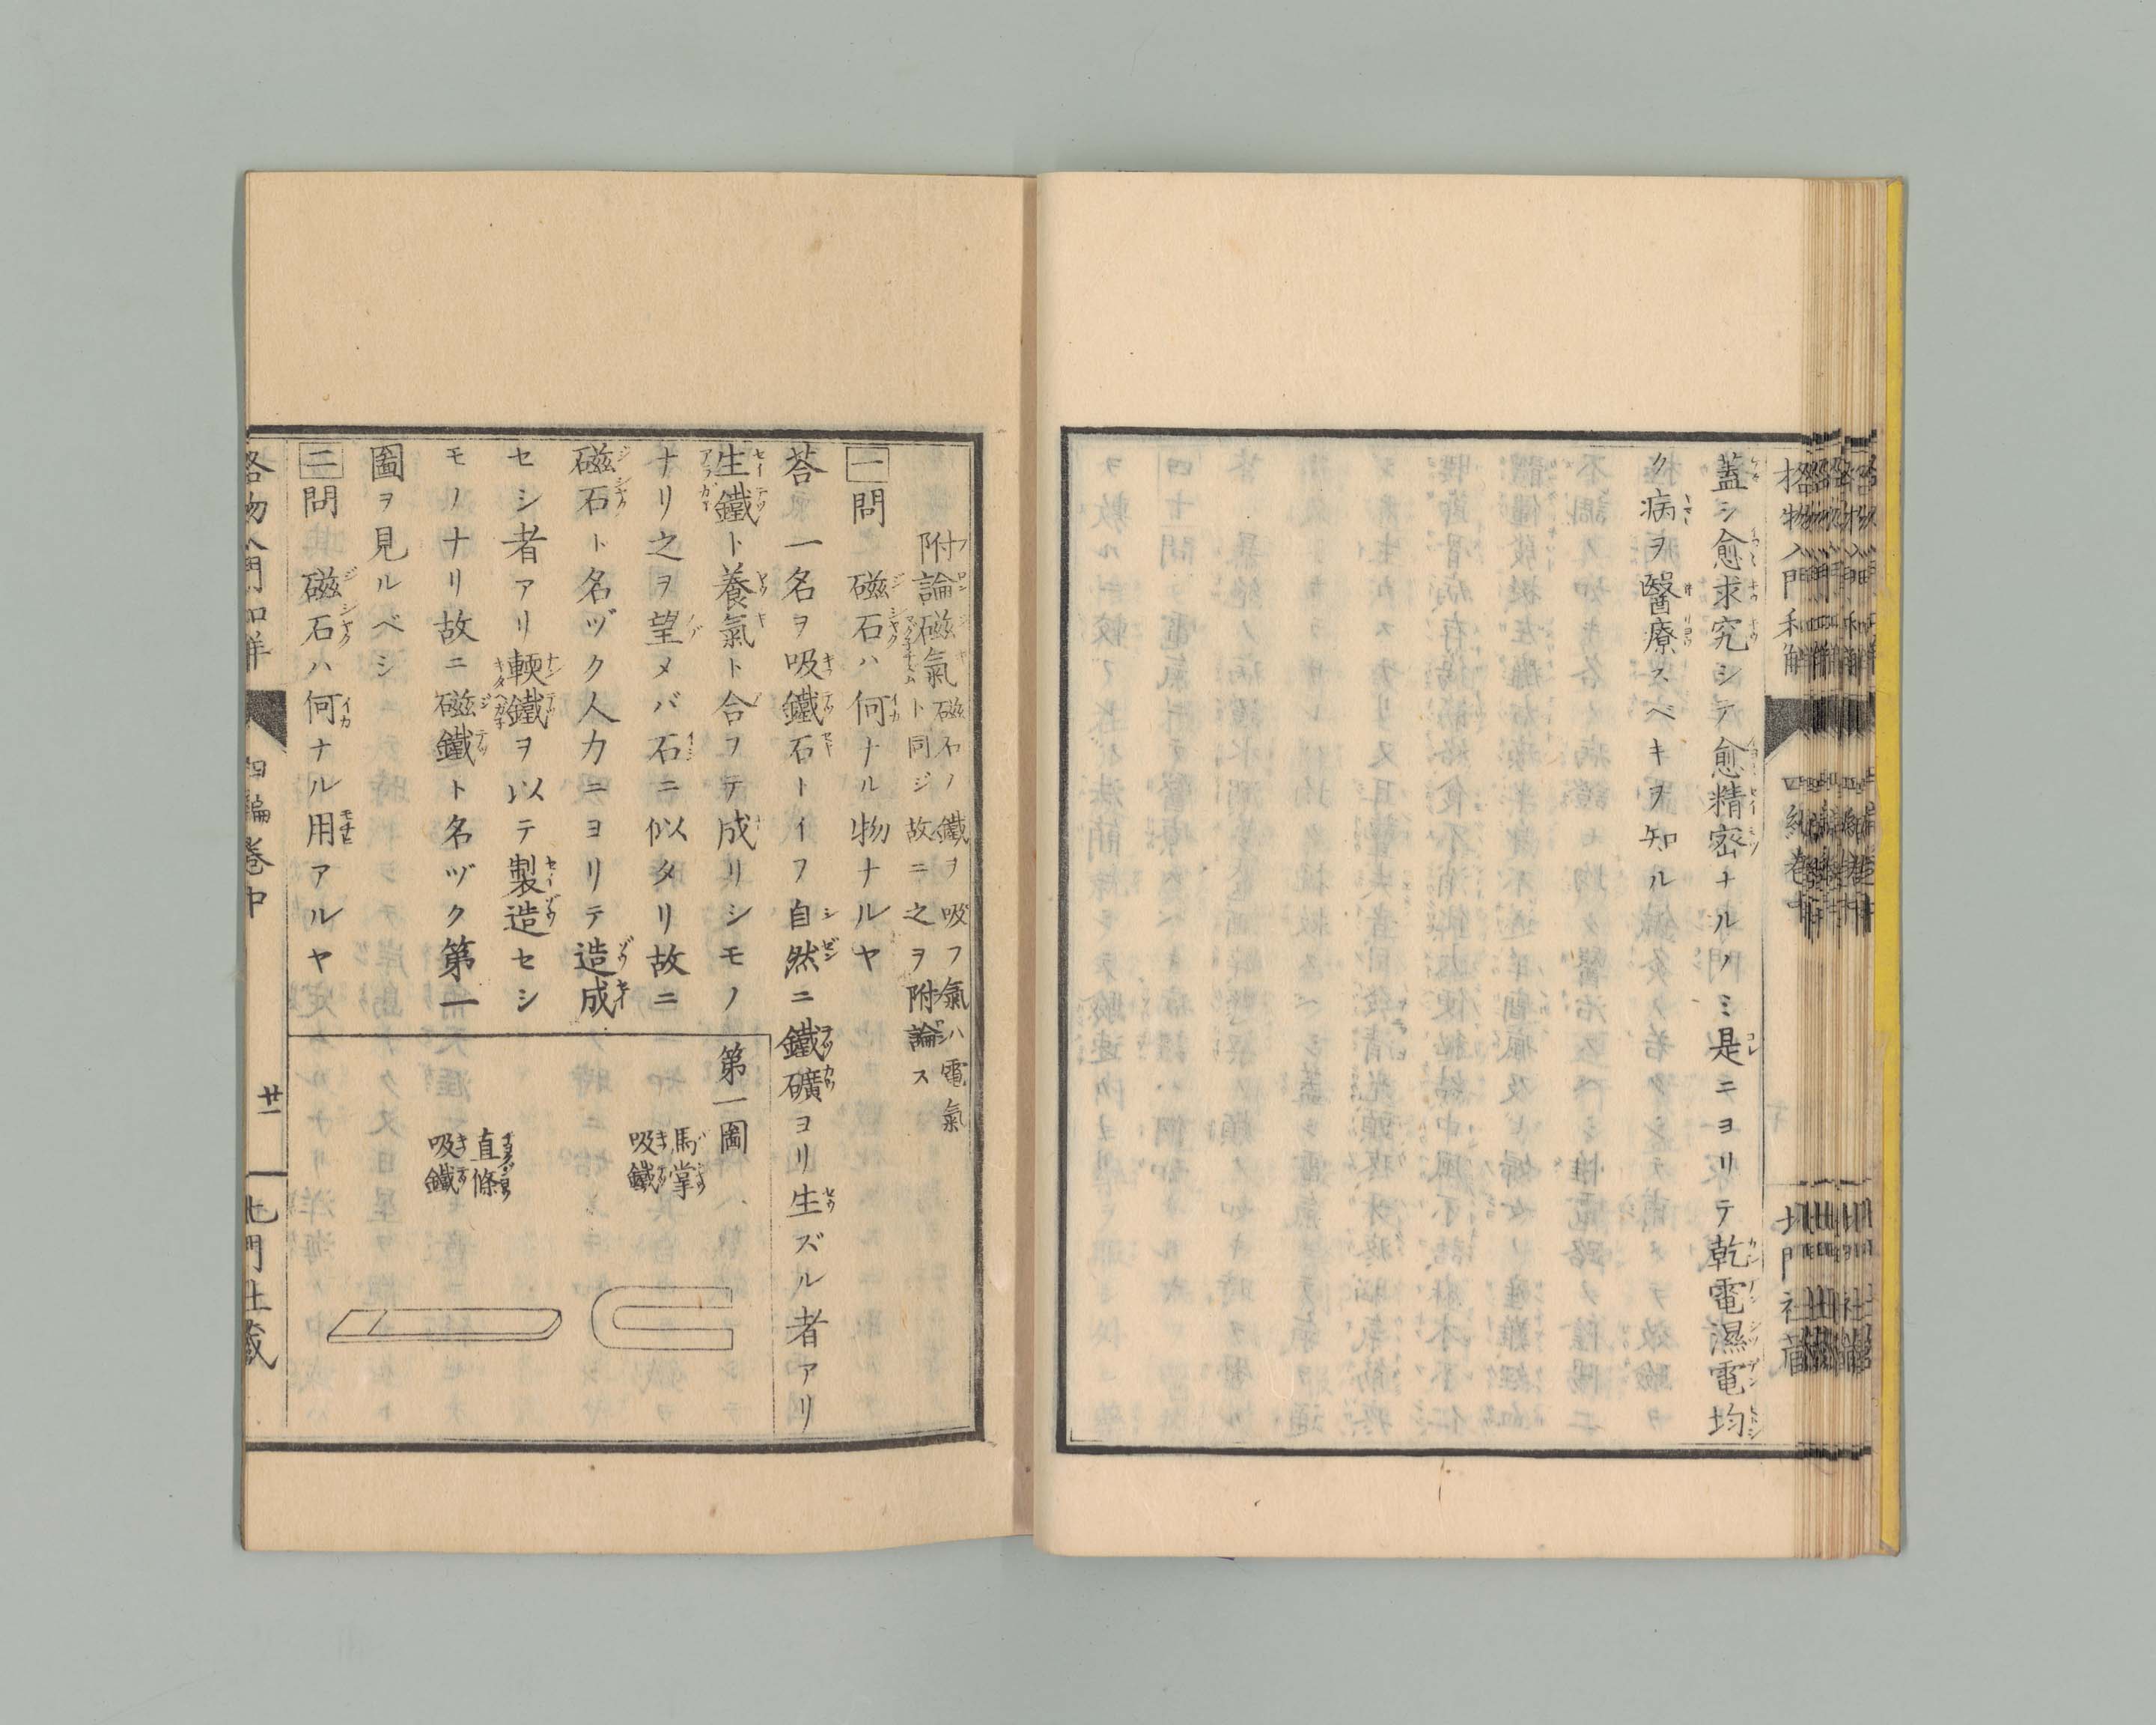 格物入門和解
四編卷中
北門社藏
蓋シ愈求究シテ愈精密ナルノミ是ニヨリテ乾電濕電均
ク病ヲ醫療スベキヲ知ル
附論磁氣磁石ノ鐵ヲ吸フ氣ハ電氣
ト同ジ故ニ之ヲ附論ス
一問磁石ハ何ナル物ナルヤ
荅一名ヲ吸鐵石トイフ自然ニ鐵礦ヨリ生ズル者アリ
生鐵ト養氣ト合フテ成リシモノ
ナリ之ヲ望メバ石ニ似タリ故ニ
磁石ト名ヅク人力ニヨリテ造成
セシ者アリ輭鐵ヲ以テ製造セシ
モノナリ故ニ磁鐵ト名ヅク第一
圖ヲ見ルベシ
第一圖
馬掌
吸鐵
直條
吸鐵
二問磁石ハ何ナル用アルヤ
格物入門和解
四編卷中
廿一
北門社藏